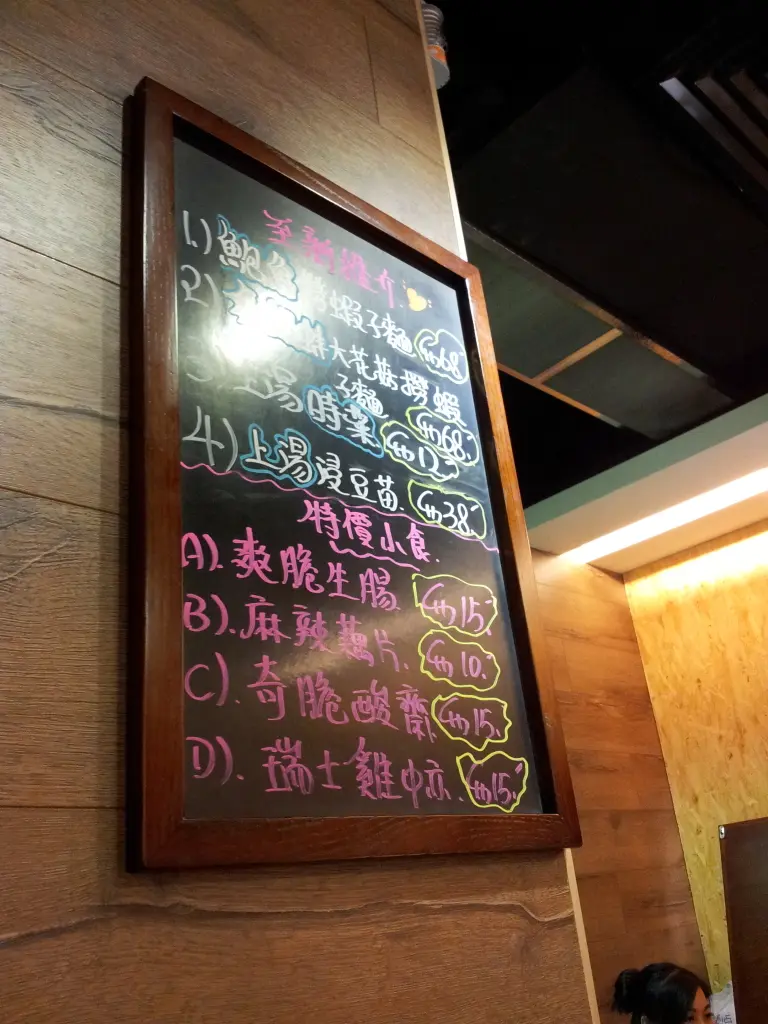 至新推介
1.) 鮑魚撈蝦子麵 $68.-
2) 大花菇撈蝦
子麵 $68.-
3) 上湯時菜 $12.-
4) 上湯浸豆苗. $38.-
特價小食.
A). 爽脆生腸 $15.-
B). 麻辣藕片. $10.-
C). 奇脆酸齋 $15.-
D). 瑞士雞中亦. $15.-